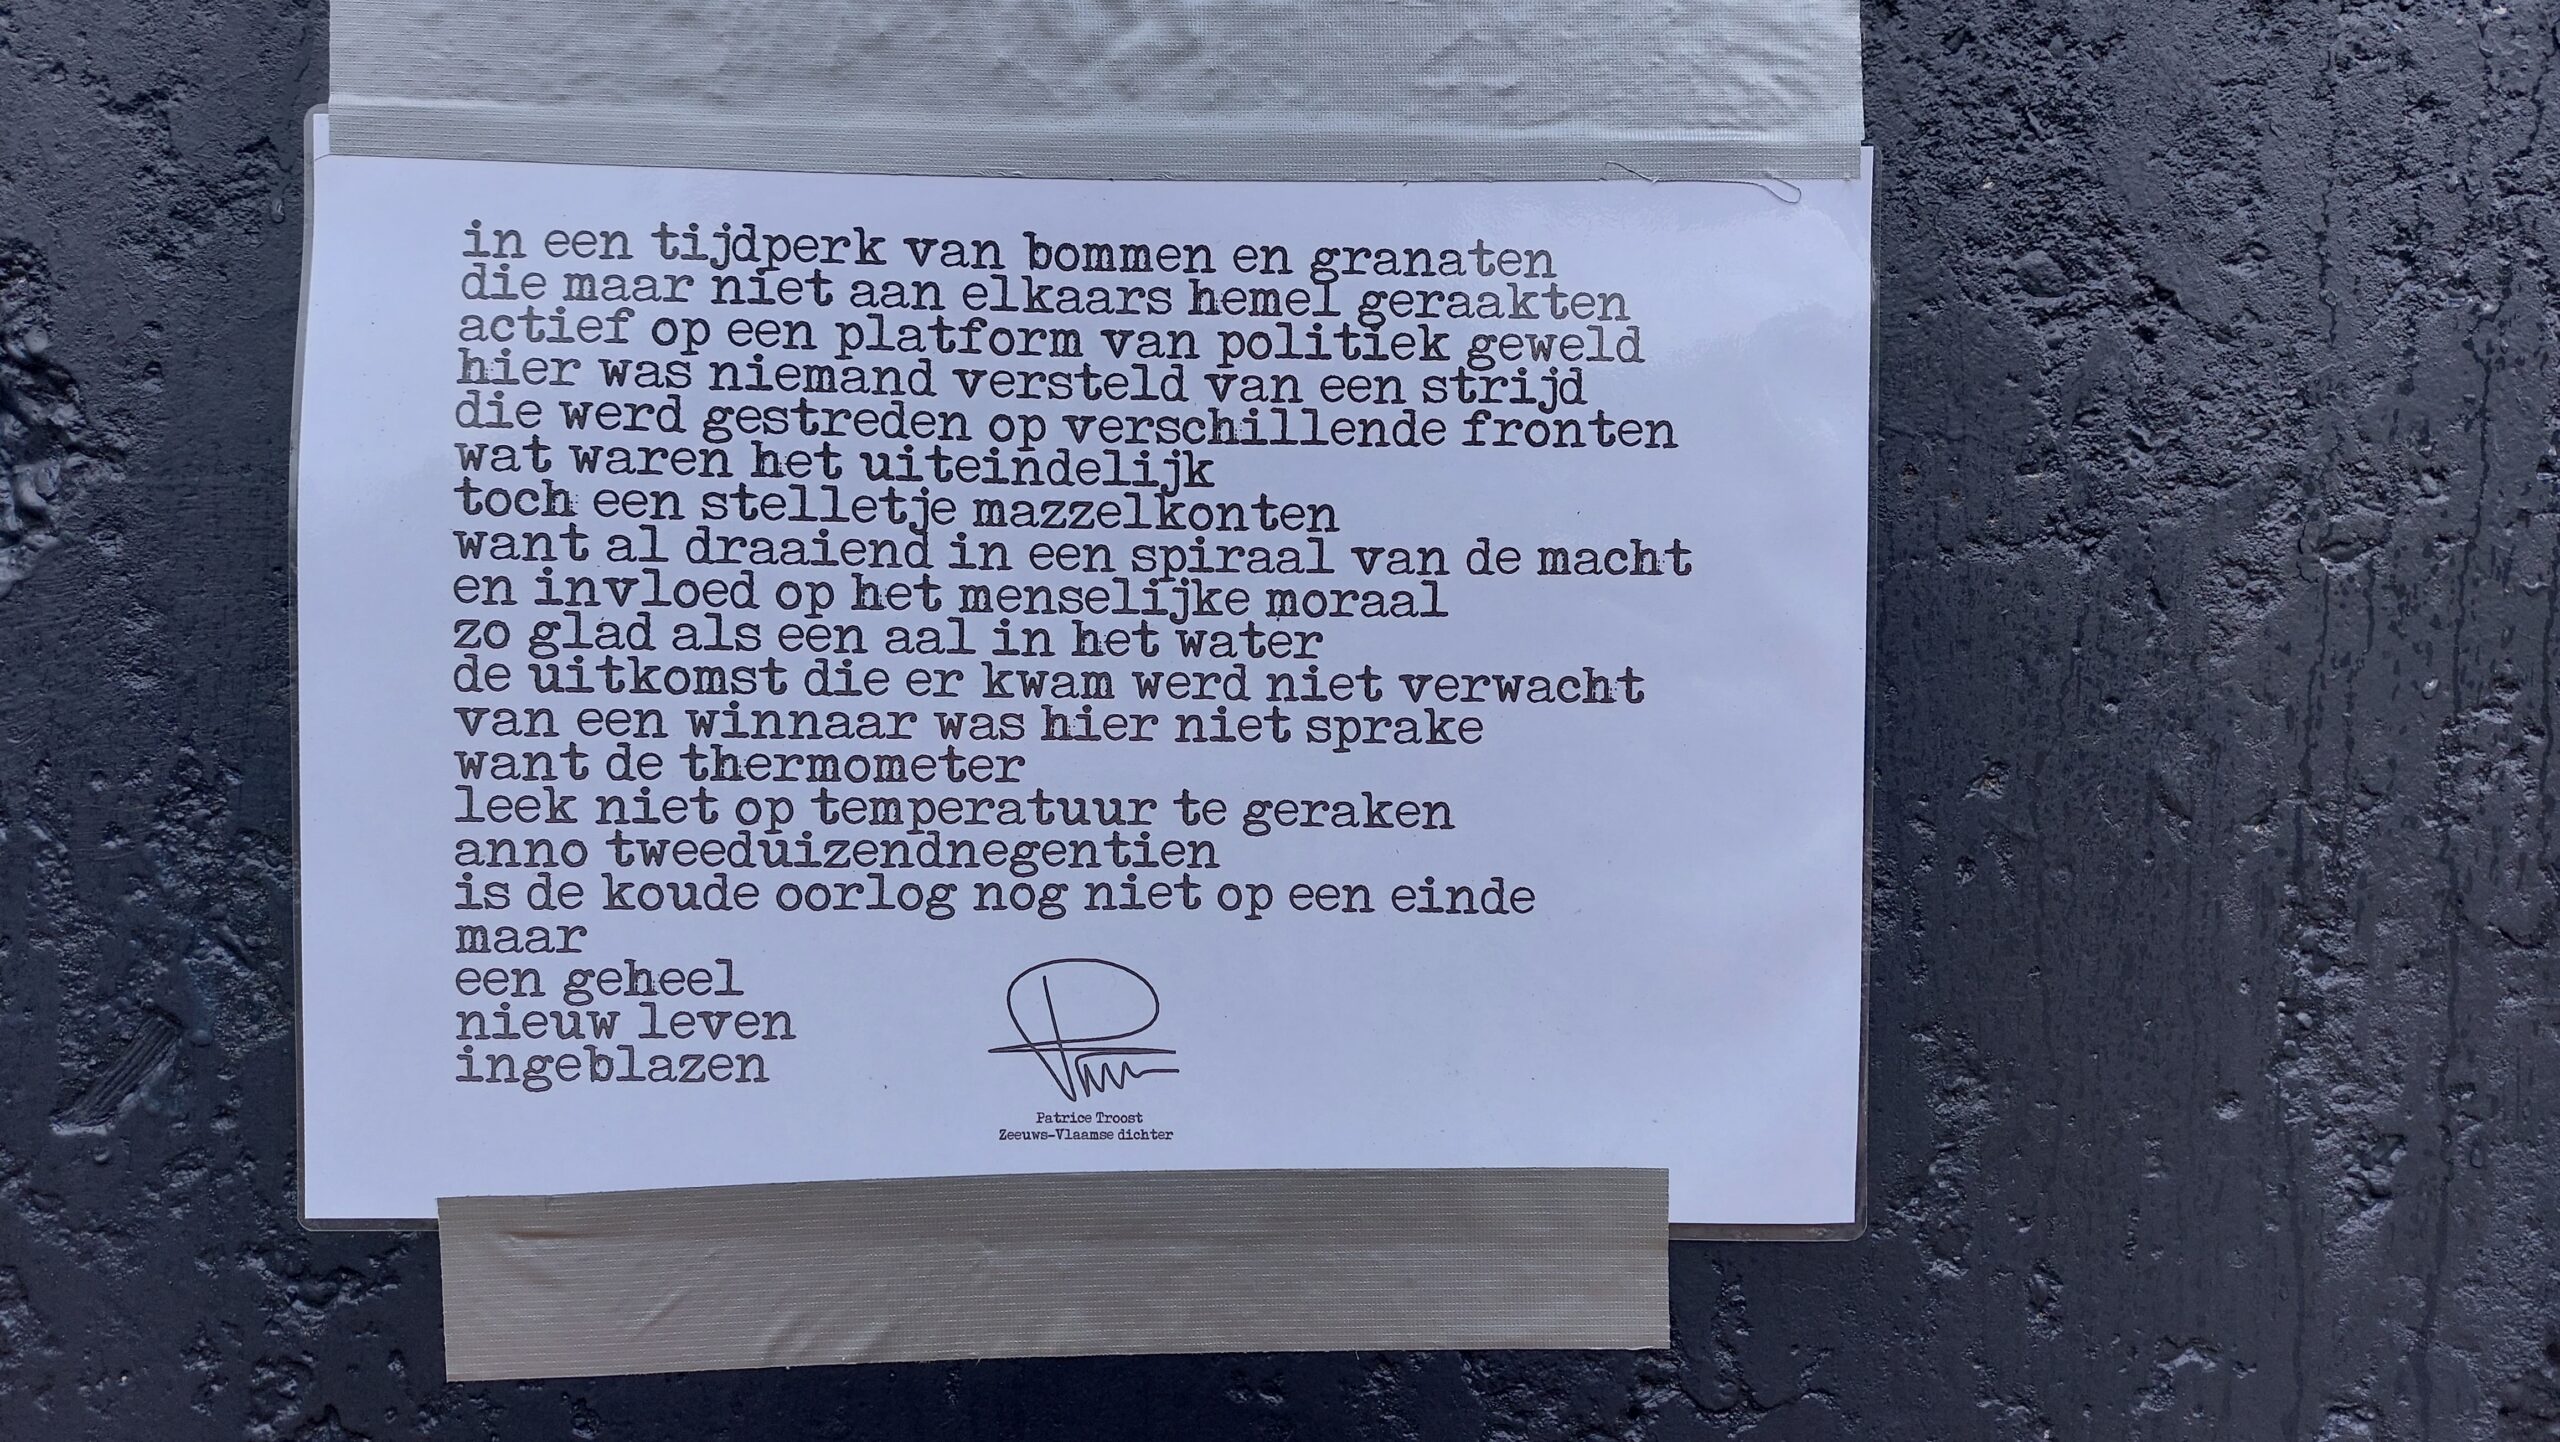 in een tijdperk van bommen en granaten
die maar niet aan elkaars hemel geraakten
actief op een platform van politiek geweld
hier was niemand versteld van een strijd
die werd gestreden op verschillende fronten
wat waren het uiteindelijk
toch een stelletje mazzelkonten
want al draaiend in een spiraal van de macht
en invloed op het menselijke moraal
zo glad als een aal in het water
de uitkomst die er kwam werd niet verwacht
van een winnaar was hier niet sprake
want de thermometer
leek niet op temperatuur te geraken
anno tweeduizendnegentien
is de koude oorlog nog niet op een einde
maar
een geheel
nieuw leven
ingeblazen
Patrice Troost
Zeeuws-Vlaamse dichter